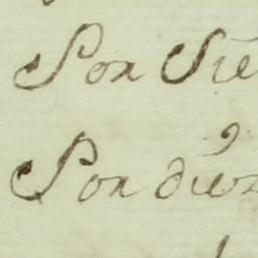 Por Sie
Por diez